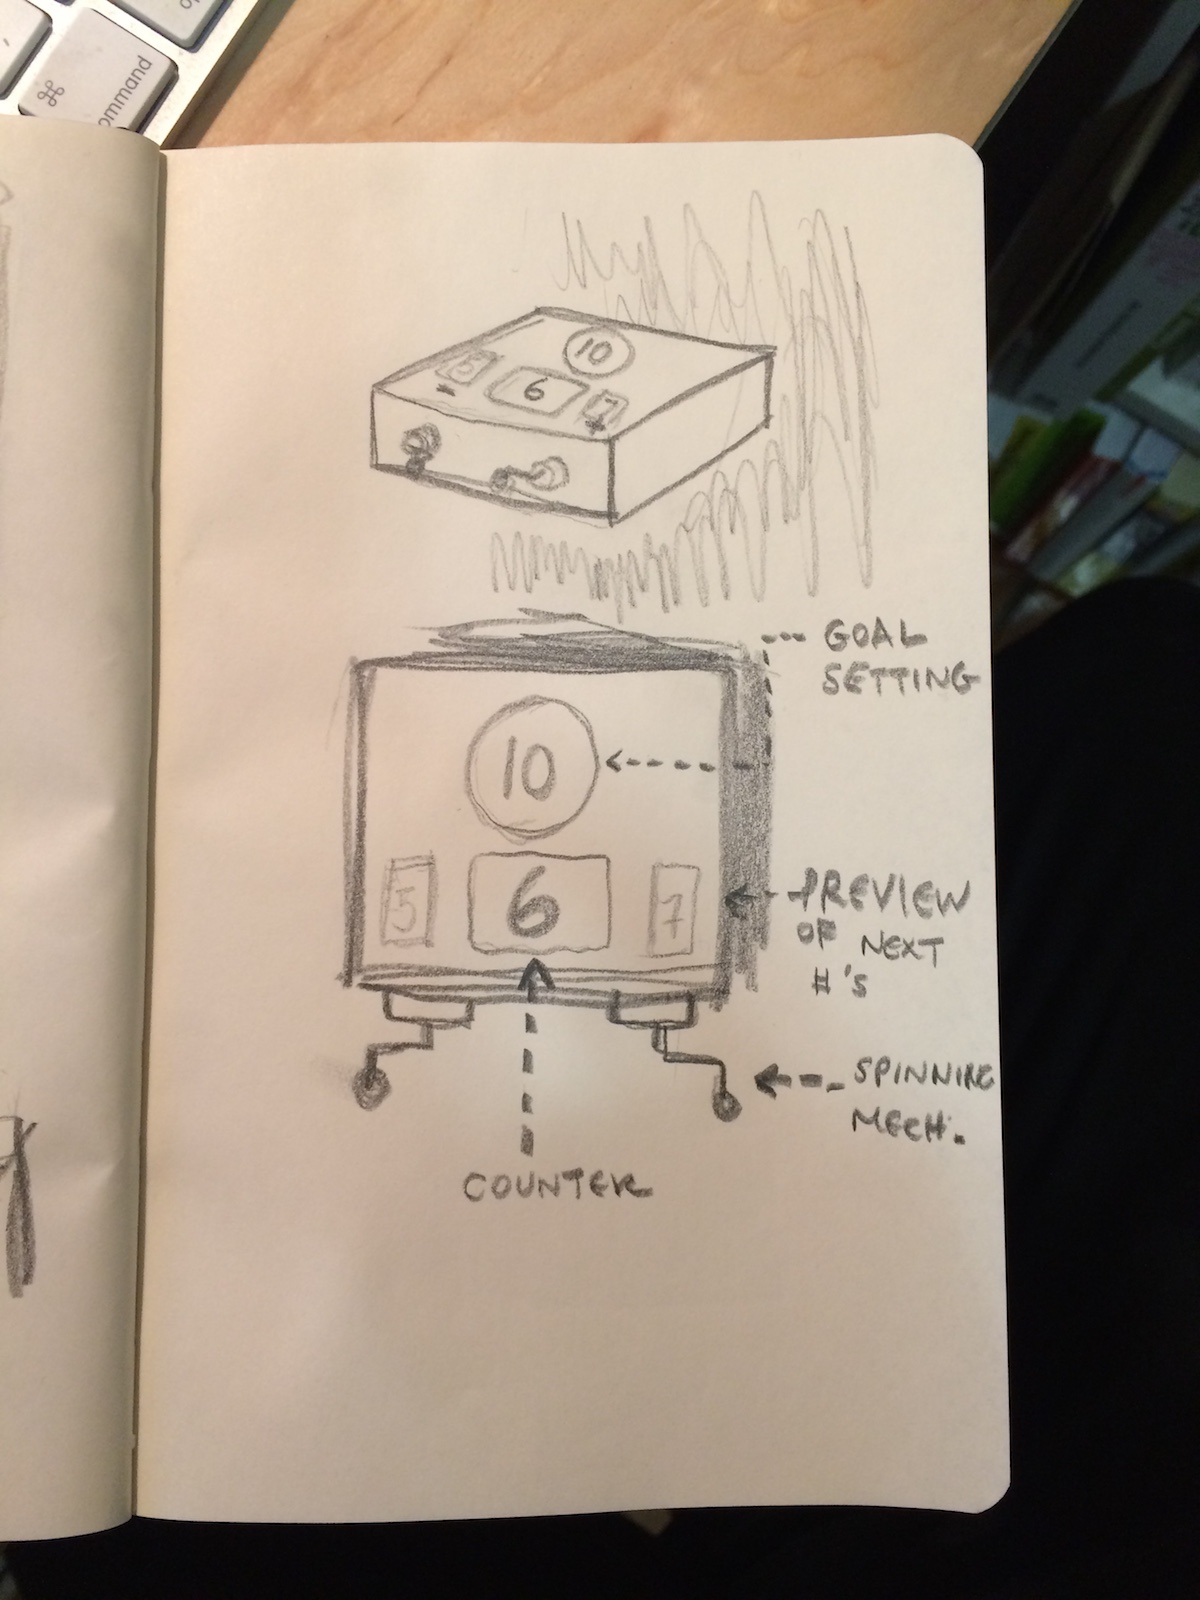 ⌘
command
op
10
5
6
7
GOAL
SETTING
10
5
6
7
PREVIEW
OF NEXT
#'s
SPINNING
MECH.
COUNTER